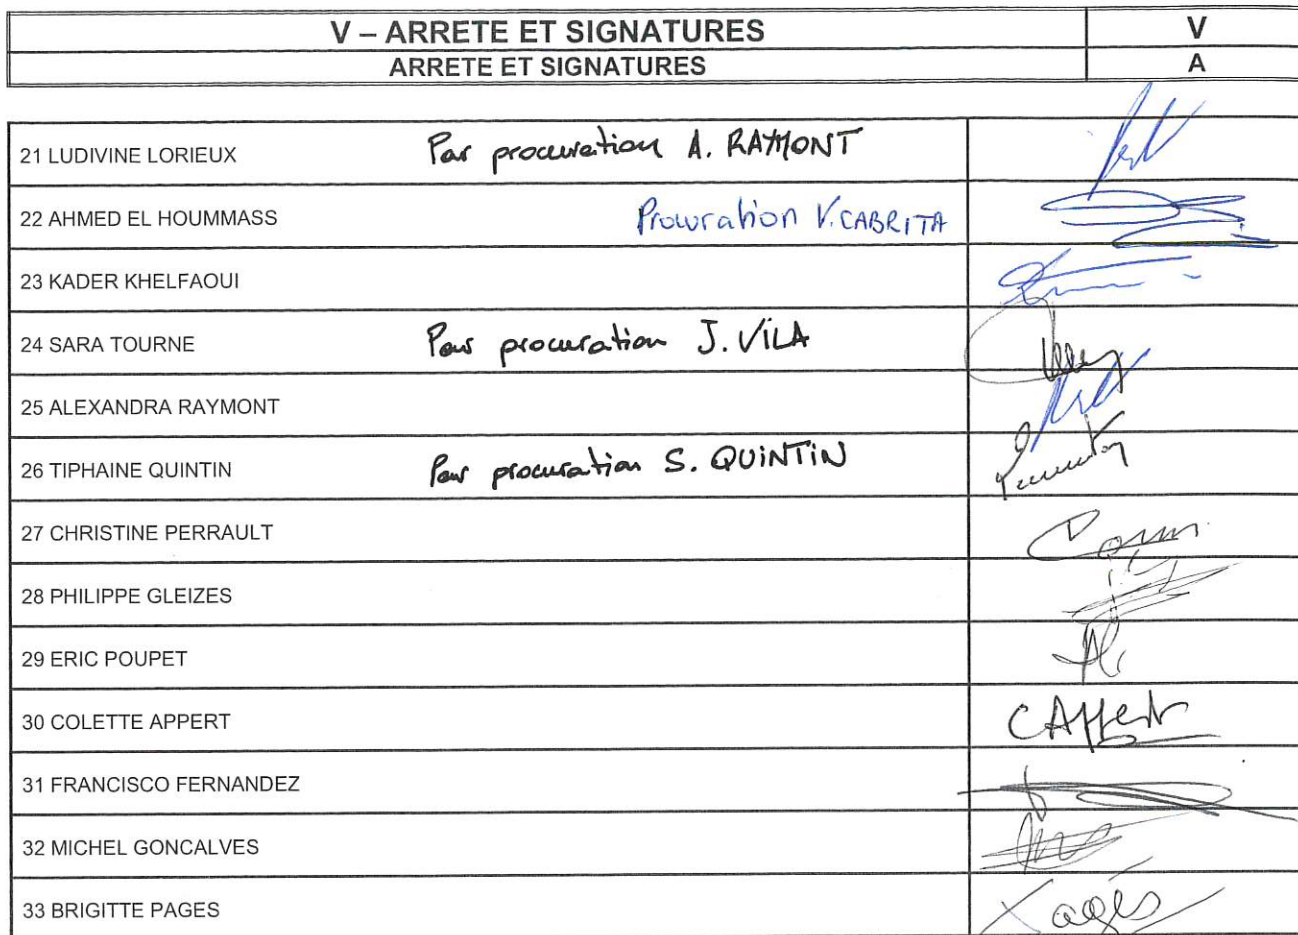 V – ARRETE ET SIGNATURES V
ARRETE ET SIGNATURES A
21 LUDIVINE LORIEUX Par procuration A. RAYMONT
22 AHMED EL HOUMMASS Procuration V. CABRITA
23 KADER KHELFAOUI
24 SARA TOURNE Par procuration J. VILA
25 ALEXANDRA RAYMONT
26 TIPHAINE QUINTIN Par procuration S. QUINTIN
27 CHRISTINE PERRAULT
28 PHILIPPE GLEIZES
29 ERIC POUPET
30 COLETTE APPERT CAppert
31 FRANCISCO FERNANDEZ
32 MICHEL GONCALVES
33 BRIGITTE PAGES Pagès